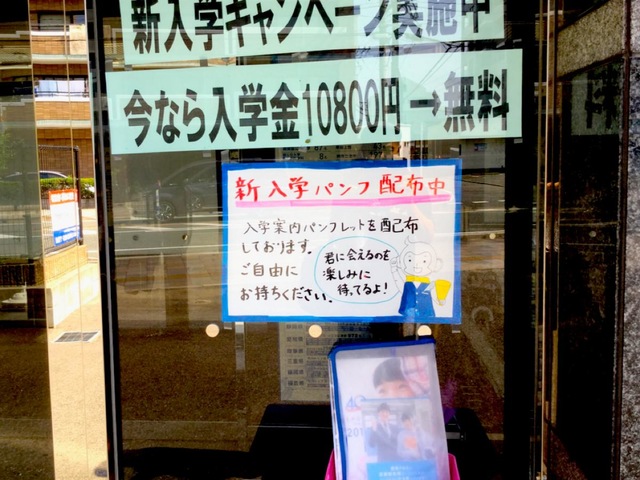 新入学キャンペーン実施中
今なら入学金10800円→無料
新入学パンフ配布中
入学案内パンフレットを配布
しております。
ご自由に
お持ちください。
君に会えるのを
楽しみに
待ってるよ!